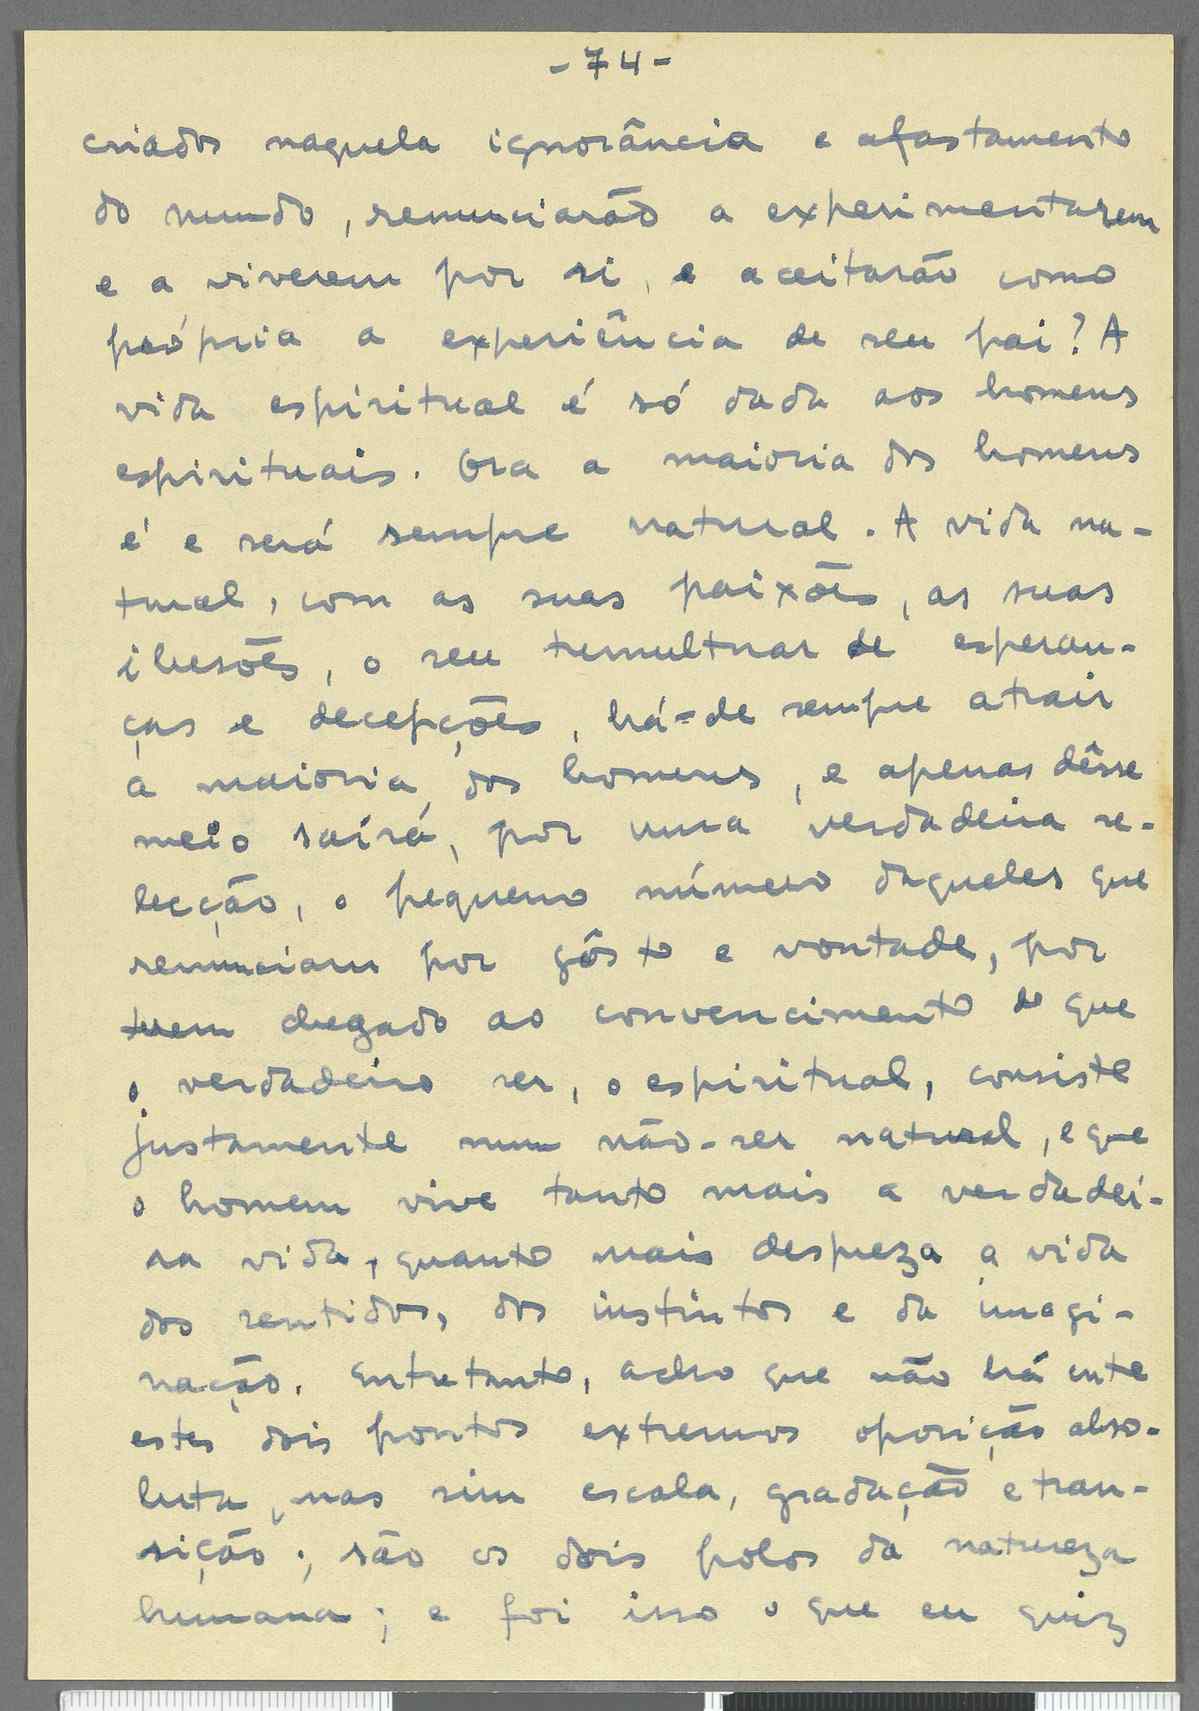 - 74 -
criados naquela ignorância e afastamento
do mundo, renunciarão a experimentarem
e a viverem por si, e aceitarão como
própria a experiência de seu pai? A
vida espiritual é só dada aos homens
espirituais. Ora a maioria dos homens
é e será sempre natural. A vida na-
tural, com as suas paixões, as suas
ilusões, o seu tumultuar de esperan-
ças e decepções, há-de sempre atrair
a maioria dos homens, e apenas dêsse
meio sairá, por uma verdadeira se-
lecção, o pequeno número daqueles que
renunciam por gôsto e vontade, por
terem chegado ao convencimento de que
o verdadeiro ser, o espiritual, consiste
justamente num não-ser natural, e que
o homem vive tanto mais a verdadei-
ra vida, quanto mais despreza a vida
dos sentidos, dos instintos e da imagi-
nação. Entretanto, acho que não há entre
estes dois pontos extremos oposição abso-
luta, mas sim escala, gradação e tran-
sição; são os dois polos da natureza
humana; e foi isso o que eu quiz